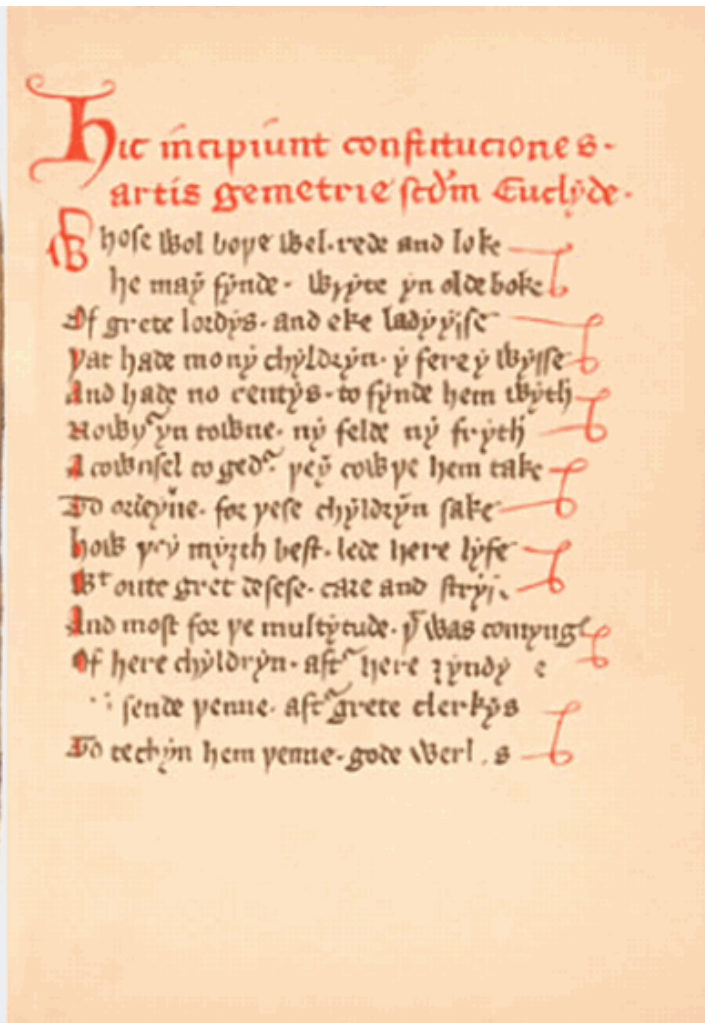 Hic incipiunt constituciones
artis gemetrie scdm Euclyde.
Whose wol boþe wel rede and loke
he may fynde wryte yn olde boke
Of grete lordys and eke ladyysse
þat hade mony chyldryn y fere y wysse
And hade no rentys to fynde hem wyth
Nowþyr yn towne ny felde ny fryth
A cownsel togedr þey cowþe hem take
To ordeyne for þese chyldryn sake
how þey myȝth best lede here lyfe
Wt oute gret desese care and
And most for þe multytude þt was comyng
Of here chyldryn aftr here
sende þenne aftr grete clerkys
To techyn hem þenne gode